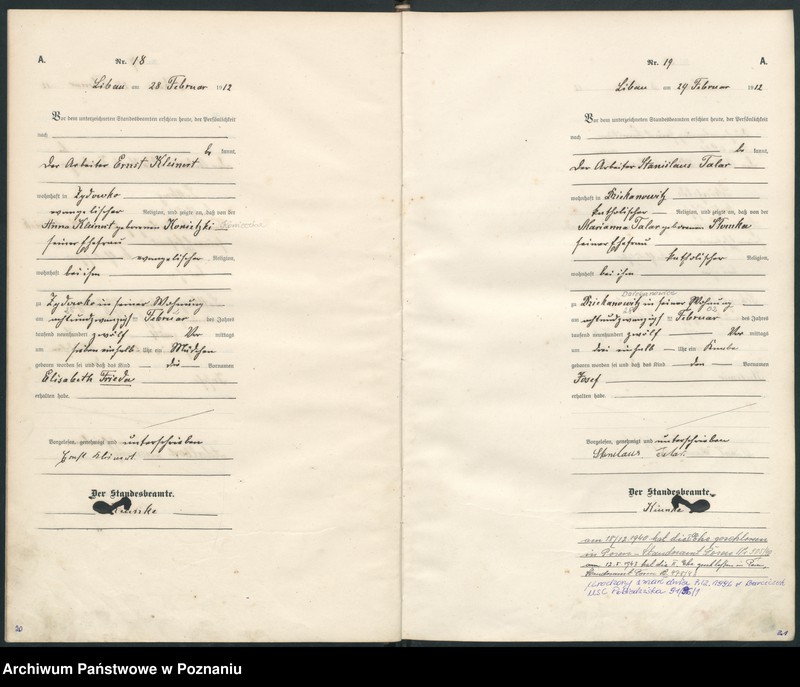 A.
Nr. 18
Libau am 28 Februar 1912
Vor dem unterzeichneten Standesbeamten erschien heute, der Persönlichkeit
nach
be kannt,
Der Arbeiter Ernst Kleinert
wohnhaft in Zydowko
evangelischer Religion, und zeigte an, daß von der
Anna Kleinert geborenen Konietzki
seiner Ehefrau
evangelischer Religion,
wohnhaft bei ihm
zu Zydowko in seiner Wohnung
am achtundzwanzig ten Februar des Jahres
tausend neunhundert zwölf Vor mittags
um sieben einhalb Uhr ein Mädchen
geboren worden sei und daß das Kind die Vornamen
Elisabeth Frieda
erhalten habe.
Vorgelesen, genehmigt und unterschrieben
Ernst Kleinert
Der Standesbeamte.
20
Nr. 19
A.
Libau am 29 Februar 1912
Vor dem unterzeichneten Standesbeamten erschien heute, der Persönlichkeit
nach
be kannt,
Der Arbeiter Stanislaus Talar
wohnhaft in Dziekanowitz
katholischer Religion, und zeigte an, daß von der
Marianna Talar geborenen
seiner Ehefrau
katholischer Religion,
wohnhaft bei ihm
zu Dziekanowitz in seiner Wohnung
am achtundzwanzig ten Februar des Jahres
tausend neunhundert zwölf Vor mittags
um drei einhalb Uhr ein Knabe
geboren worden sei und daß das Kind den Vornamen
Josef
erhalten habe.
Vorgelesen, genehmigt und unterschrieben
Stanislaus Talar
Der Standesbeamte.
am 18/12 1940 hat die Ehe geschlossen
in Standesamt
am 12.5.1943 hat die II. Ehe geschlossen in
Standesamt
USC
21
Archiwum Państwowe w Poznaniu